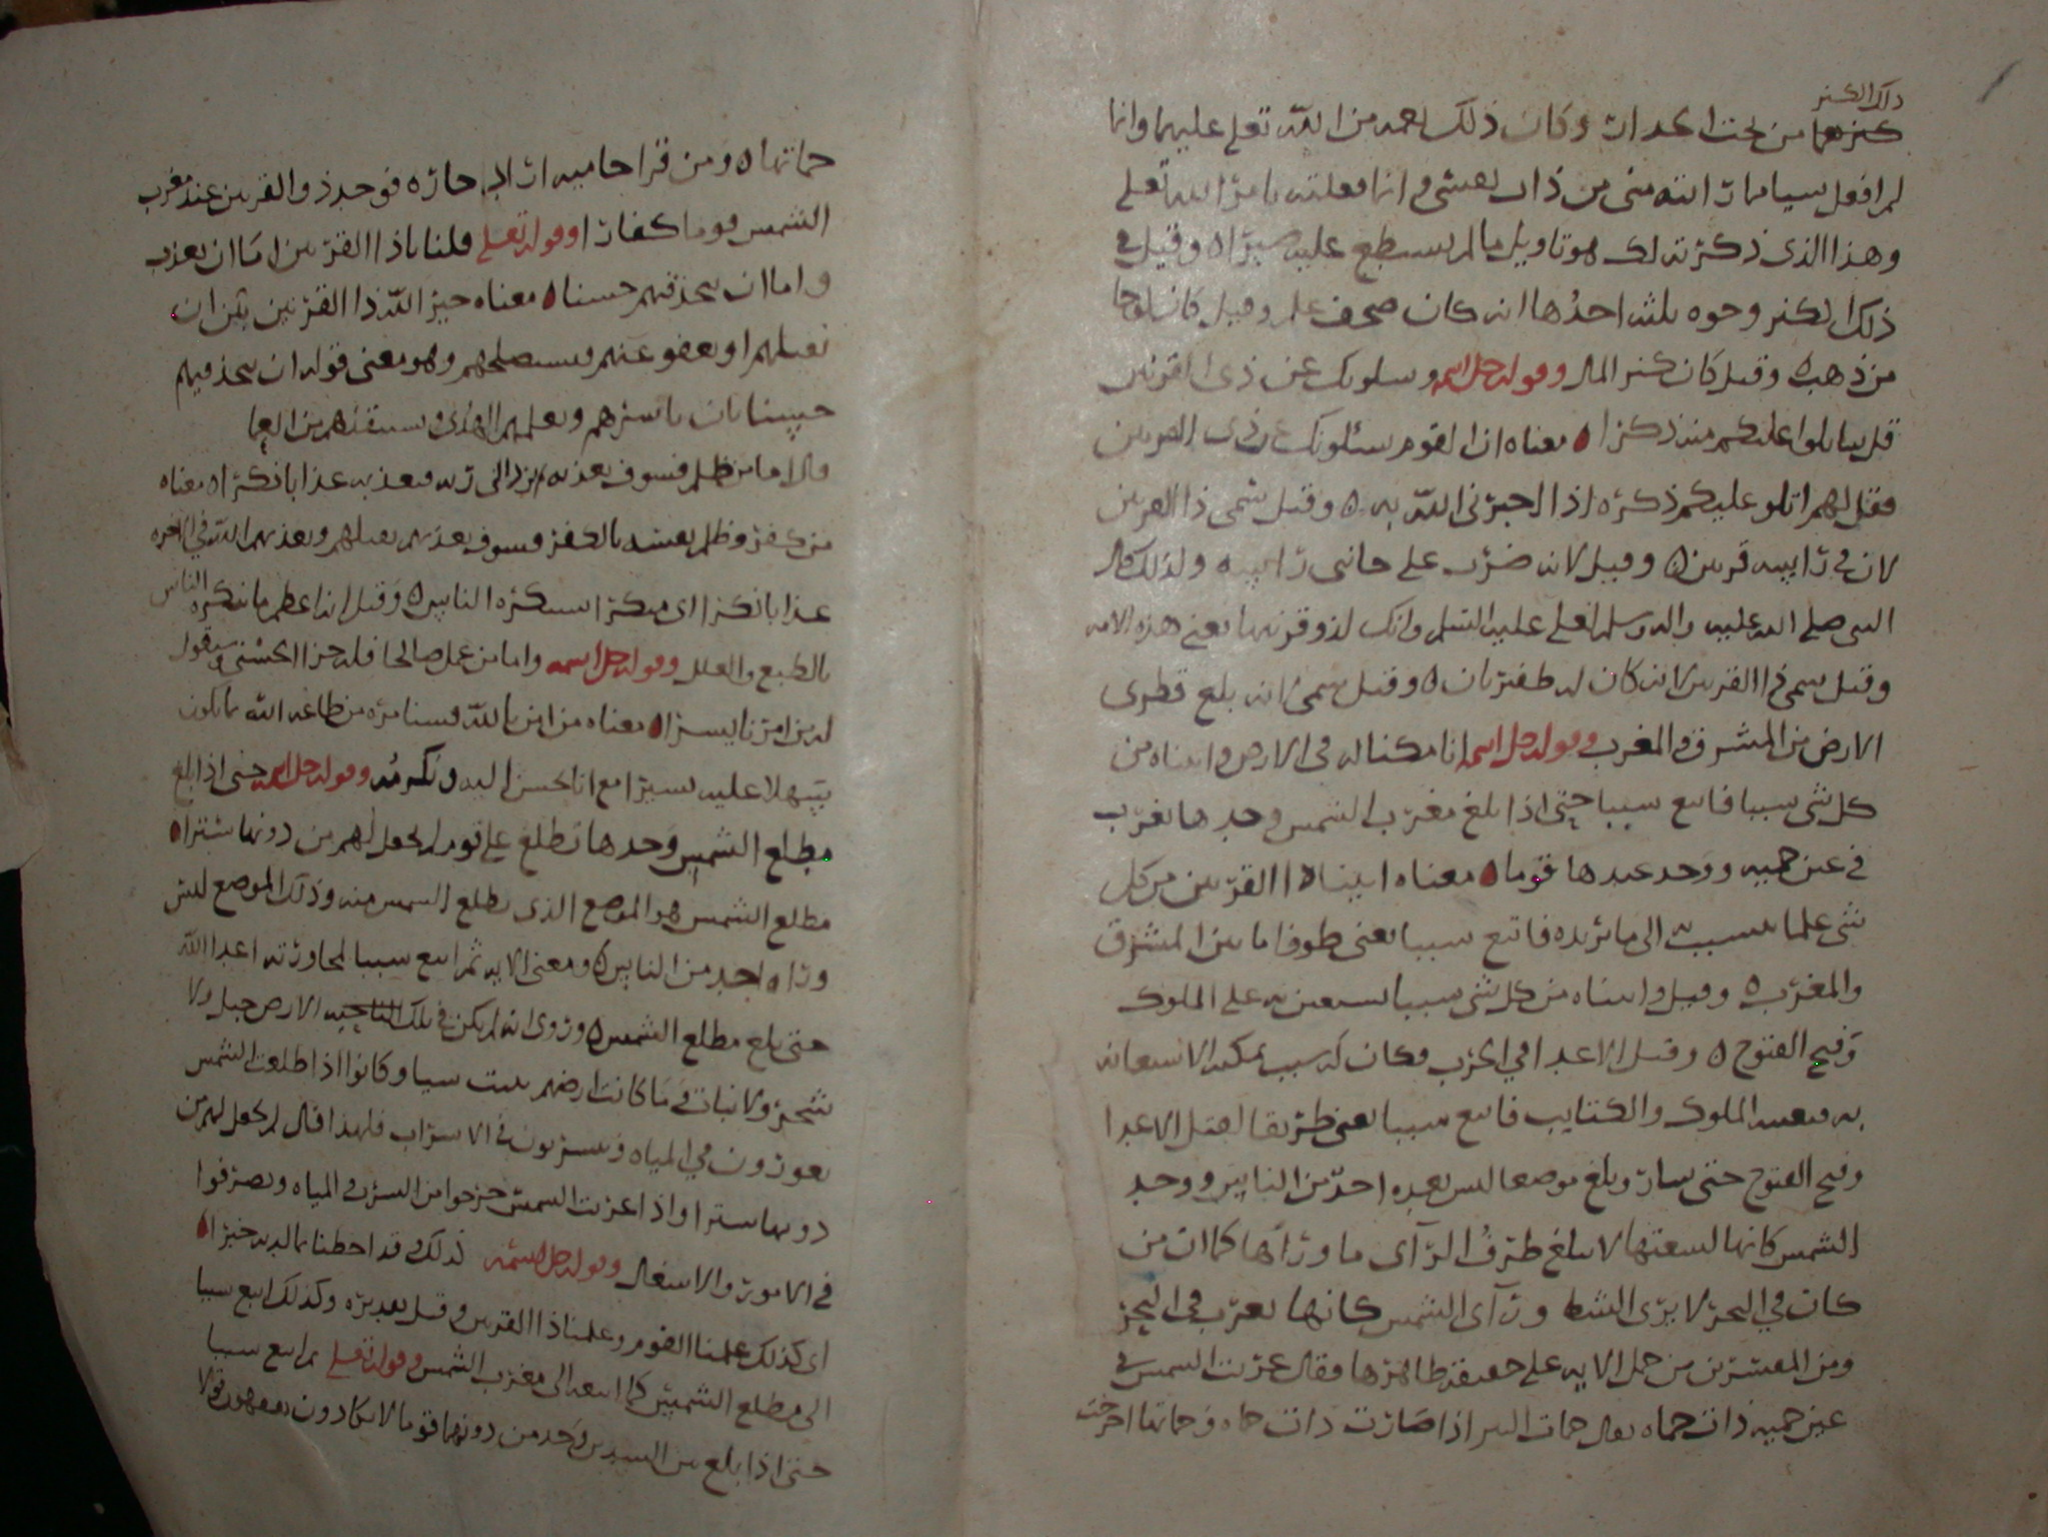 ذلك الكنز
كنزهما من تحت الجدار وكان ذلك نعمه من الله تعلى عليهما وانما
لم افعل شيا مما رايته منى من ذات نفسي وانما فعلته بامر الله تعلى
وهذا الذي ذكرته لك هو تاويل ما لم تسطع عليه صبرا ه وقيل في
ذلك الكنز وجوه ثلثه احدها انه كان صحف علم وقيل كان لوحا
من ذهب ه وقيل كان كنز المال وقوله جل اسمه ويسلونك عن ذي القرنين
قل ساتلوا عليكم منه ذكرا ه معناه ان القوم يسئلونك عن ذي القرنين
فقل لهم اتلو عليكم ذكره اذا اخبرني الله به ه وقيل سمى ذا القرنين
لان في راسه قرنين ه وقيل لانه ضرب على جانبي راسه ولذلك قال
النبي صلى الله عليه واله وسلم لعلي عليه السلم وانك لذو قرنيها يعني هذه الامه
وقيل سمى ذا القرنين لانه كان له ظفيرتان ه وقيل سمى لانه بلغ قطرى
الارض من المشرق والمغرب وقوله جل اسمه انا مكنا له في الارض واتيناه من
كل شى سببا فاتبع سببا حتى اذا بلغ مغرب الشمس وجدها تغرب
في عين حميه ووجد عندها قوما ه معناه اتينا ذا القرنين من كل
شى علما يتسبب به الى ما يريده فاتبع سببا يعنى طوفا ما بين المشرق
والمغرب ه وقيل واتيناه من كل شى سببا يستعين به على الملوك
وفتح الفتوح ه وقتل الاعدا في الحرب فكان له سبب يمكنه الاستعانه
به فتبعه الملوك والكتايب فاتبع سببا يعنى طريقا لقتل الاعدا
وفتح الفتوح حتى سار وبلغ موضعا ليس بعده احد من الناس ووجد
الشمس كانها لسعتها لا يبلغ طرف الرآى ما وراها كما ان من
كان في البحر لا يرى الشط ورآى الشمس كانها تغرب في البحر
ومن المفسرين من حمل الايه على حقيقة ظاهرها فقال غربت الشمس في
عين حميه ذات حماه يقال حمات البير اذا صارت ذات حماه وحماتها اخرجت
حماتها ه ومن قرا حاميه اراد حاره فوجد ذو القرنين عند مغرب
الشمس قوما كفارا وقوله تعلى قلنا ياذا القرنين اما ان تعذب
واما ان تتخذ فيهم حسنا ه معناه خير الله ذا القرنين بين ان
يقتلهم او يعفو عنهم ويستصلحهم وهو معنى قوله ان تتخذ فيهم
حسنا بان ياسرهم ويعلمهم الهدى ويستنقذهم من العما
قال اما من ظلم فسوف نعذبه ثم يرد الى ربه فيعذبه عذابا نكرا ه معناه
من كفر وظلم نفسه بالكفر فسوف نعذبهم بقتلهم ويعذبهم الله في الاخره
عذابا نكرا اى منكرا استنكره الناس ه وقيل انه اعظم ما تنكره الناس
بالطبع والعقل وقوله جل اسمه واما من عمل صالحا فله جزا الحسنى وسنقول
له من امرنا يسرا ه معناه من امن بالله فسنامره من طاعه الله بما يكون
سهلا عليه يسيرا مع انا نحسن اليه ونكرمه وقوله جل اسمه حتى اذا بلغ
مطلع الشمس وجدها تطلع على قوم لم نجعل لهم من دونها سترا ه
مطلع الشمس هو الموضع الذى تطلع الشمس منه وذلك الموضع ليس
وراه احد من الناس ه ومعنى الايه ثم اتبع سببا لمحاربته اعدا الله
حتى بلغ مطلع الشمس ه وروى انه لم يكن في تلك الناحيه الارض جبل ولا
شجر ولا نبات وما كانت ارضهم تنبت شيا وكانوا اذا طلعت الشمس
يغورون في المياه ويتسربون في الاسراب فلهذا قال لم نجعل لهم من
دونها سترا واذا غربت الشمس خرجوا من السرب والمياه وتصرفوا
في الامور والاشغال وقوله جل اسمه كذلك وقد احطنا بما لديه خبرا ه
اى كذلك علمنا القوم وعلمنا ذا القرنين وقيل تقديره وكذلك اتبع سببا
الى مطلع الشمس كما اتبعه الى مغرب الشمس وقوله تعلى ثم اتبع سببا
حتى اذا بلغ بين السدين وجد من دونهما قوما لا يكادون يفقهون قولا